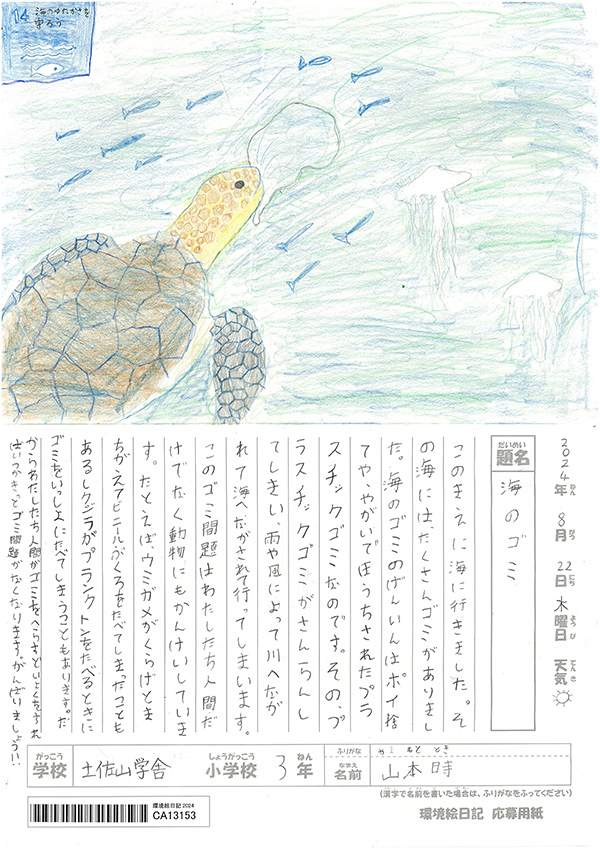 14
海のゆたかさを
守ろう
2024年 8月 22日 木曜日 天気
ねん
がつ
にち
ようび
てんき
だいめい
題名
海のゴミ
このまえに海に行きました。そ
の海には、たくさんゴミがありまし
た。海のゴミのげんいんはポイ捨
てや、やがいでほうちされたプラ
スチックゴミなのです。その、プ
ラスチックゴミがさんらんし
てしまい、雨や風によって川へなが
れて海へながされて行ってしまいます。
このゴミ問題はわたしたち人間だ
けでなく動物にもかんけいしていま
す。たとえば、ウミガメがくらげとま
ちがえてビニールぶくろをたべてしまったことも
あるしクジラがプランクトンをたべるときに
ゴミをいっしょにたべてしまうこともあります。だ
からわたしたち人間がゴミをへらすといしきをすれ
ばいつかきっとゴミ問題がなくなります。がんばりましょう!!
がっこう
学校
土佐山学舎
しょうがっこう
小学校
3
ねん
年
ふりがな
やまもと とき
なまえ
名前
山本 時
(漢字で名前を書いた場合は、ふりがなをふってください)
環境絵日記 2024
CA13153
環境絵日記 応募用紙